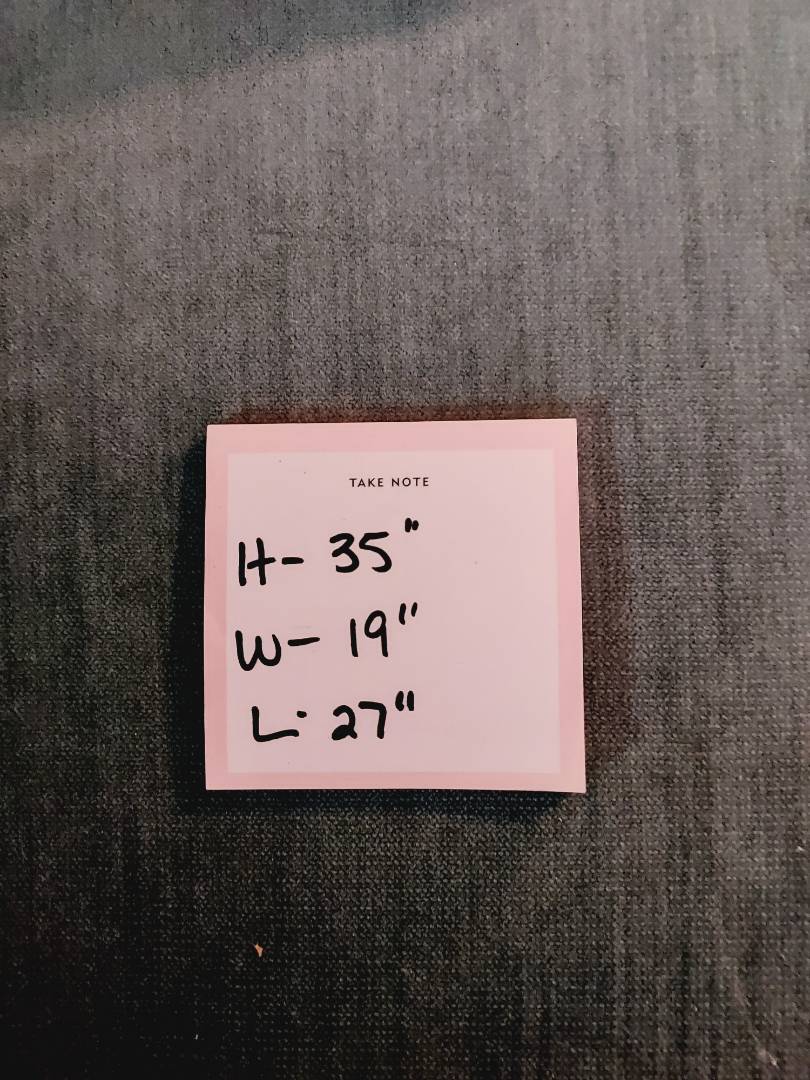 TAKE NOTE
H- 35"
W- 19"
L- 27"